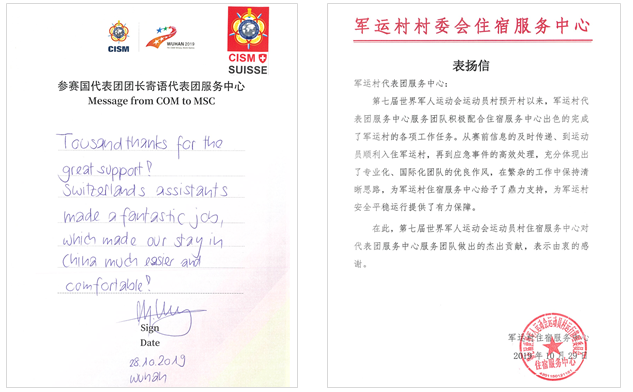 CISM
WUHAN 2019
CISM
SUISSE
参赛国代表团团长寄语代表团服务中心
Message from COM to MSC
Tousand thanks for the
great support!
Switzerlands assistants
made a fantastic job,
which made our stay in
China much easier and
comfortable!
Sign
Date
28.10.2019
Wuhan
军运村村委会住宿服务中心
表扬信
军运村代表团服务中心：
第七届世界军人运动会运动员村预开村以来，军运村代
表团服务中心服务团队积极配合住宿服务中心出色的完成
了军运村的各项工作任务。从赛前信息的及时传递、到运动
员顺利入住军运村，再到应急事件的高效处理，充分体现出
了专业化、国际化团队的优良作风，在繁杂的工作中保持清
晰思路，为军运村住宿服务中心给予了鼎力支持，为军运村
安全平稳运行提供了有力保障。
在此，第七届世界军人运动会运动员村住宿服务中心对
代表团服务中心服务团队做出的杰出贡献，表示由衷的感
谢。
军运村住宿服务中心
2019 年 10 月 29 日
住宿服务中心